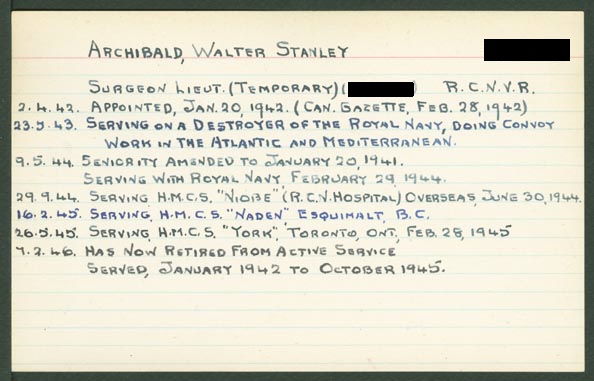 ARCHIBALD, WALTER STANLEY
SURGEON LIEUT. (TEMPORARY) ( R.C.N.V.R.
2.4.42. APPOINTED, JAN. 20, 1942. (CAN. GAZETTE, FEB. 28, 1942)
23.5.43. SERVING ON A DESTROYER OF THE ROYAL NAVY, DOING CONVOY
WORK IN THE ATLANTIC AND MEDITERRANEAN.
9.5.44. SENIORITY AMENDED TO JANUARY 20, 1941.
SERVING WITH ROYAL NAVY FEBRUARY 29, 1944.
29.9.44. SERVING H.M.C.S. "NIOBE" (R.C.N. HOSPITAL) OVERSEAS, JUNE 30, 1944.
16.2.45. SERVING, H.M.C.S. "NADEN" ESQUIMALT, B.C.
26.5.45. SERVING, H.M.C.S. "YORK", TORONTO, ONT., FEB. 28, 1945
7.2.46. HAS NOW RETIRED FROM ACTIVE SERVICE
SERVED, JANUARY 1942 TO OCTOBER 1945.